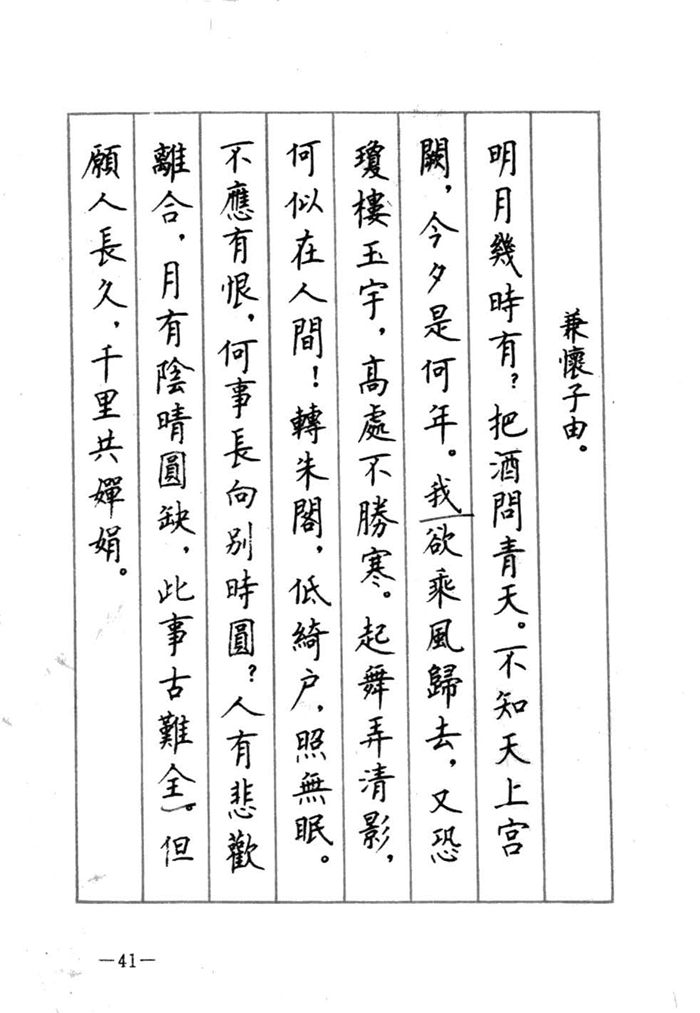 兼懷子由。
明月幾時有？把酒問青天。不知天上宫
闕，今夕是何年。我欲乘風歸去，又恐
瓊樓玉宇，高處不勝寒。起舞弄清影，
何似在人間！轉朱閣，低綺户，照無眠。
不應有恨，何事長向别時圓？人有悲歡
離合，月有陰晴圓缺，此事古難全。但
願人長久，千里共嬋娟。
—41—